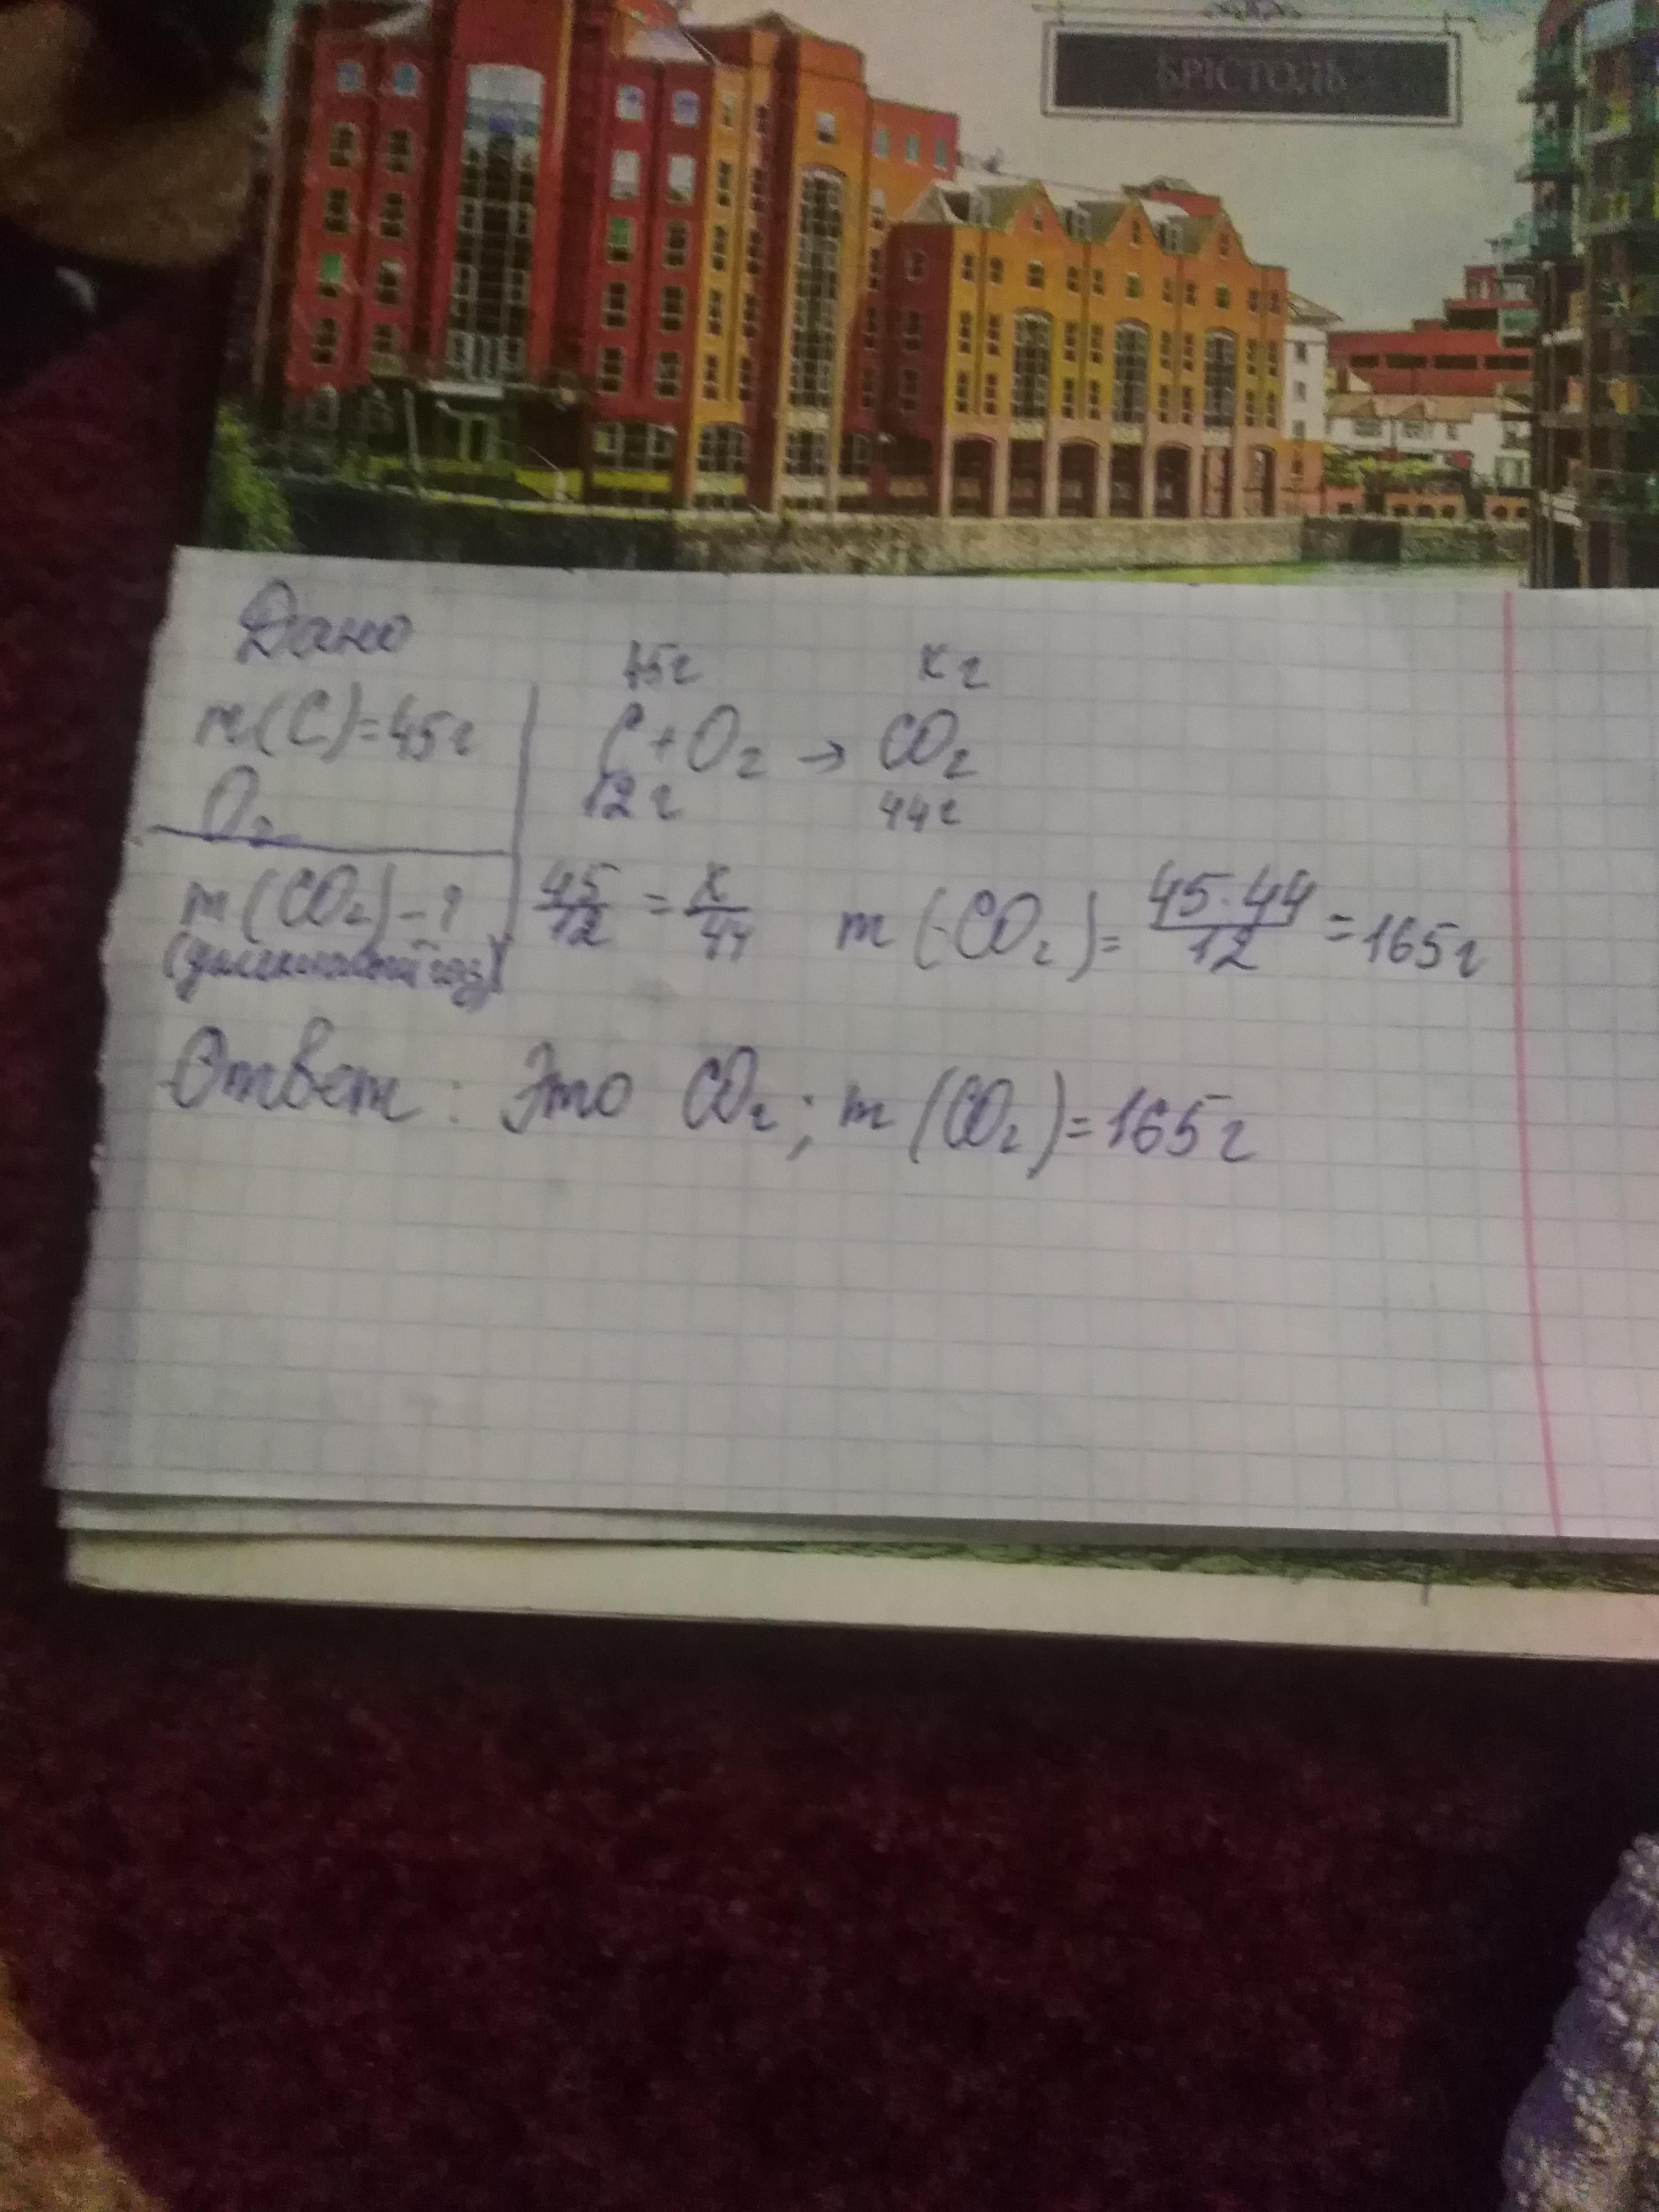 БРІСТОЛЬ
Дано
m(C)=45г
O₂
m(CO₂)-?
(углекислый газ)
45г xг
C+O₂ → CO₂
12г 44г
45/12 = x/44 m(CO₂)= 45·44/12 =165г
Ответ: Это CO₂; m(CO₂)=165г